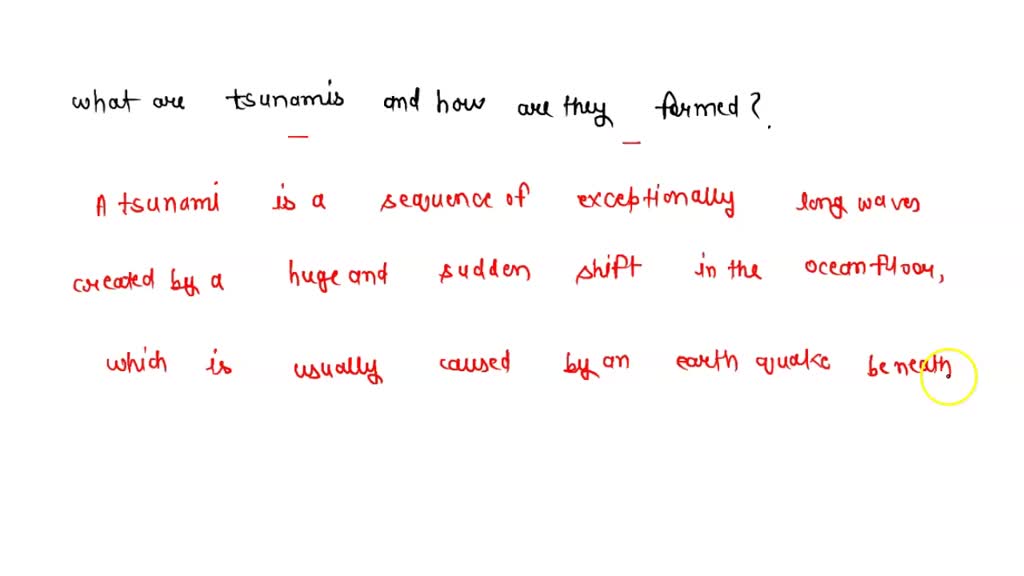 what are tsunamis and how are they formed?
A tsunami is a sequence of exceptionally long waves
created by a huge and sudden shift in the ocean floor,
which is usually caused by an earth quake beneath